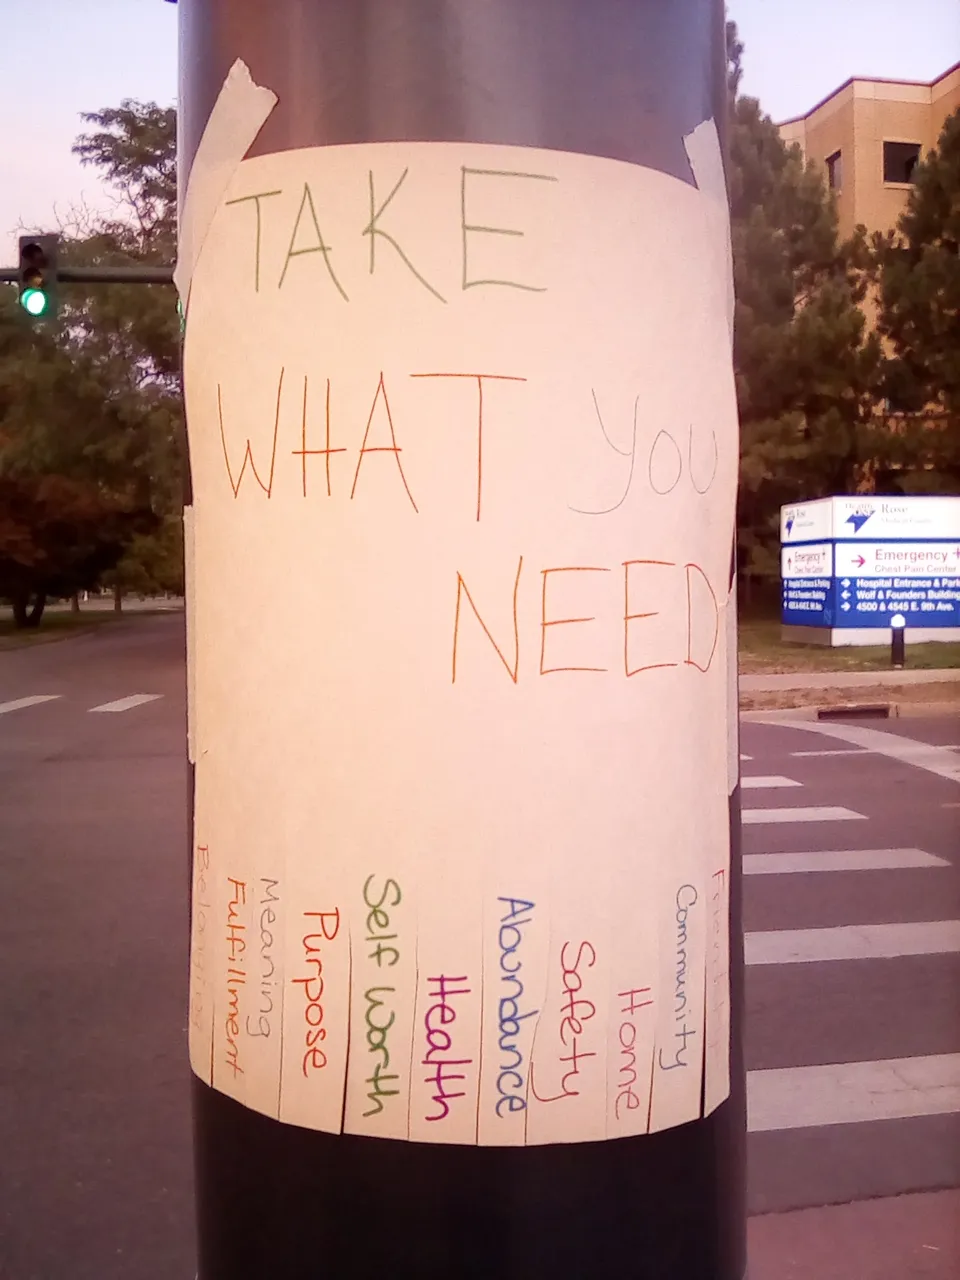 TAKE
WHAT YOU
NEED
Belonging
Meaning
Fulfillment
Purpose
Self Worth
Health
Abundance
Safety
Home
Community
Rose
Emergency +
Chest Pain Center
Hospital Entrance & Park
Wolf & Founders Building
4500 & 4545 E. 9th Ave.
Rose
Emergency +
Chest Pain Center
Hospital Entrance & Parking
Wolf & Founders Building